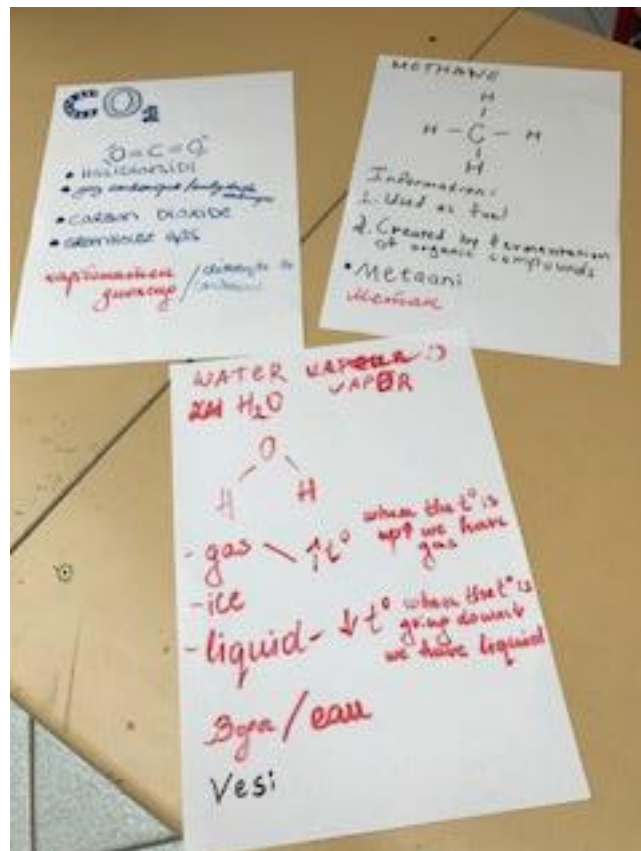 CO₂
O=C=O
• HIILIDIOKSIDI
• gaz carbonique /
• CARBON DIOXIDE
• GREENHOUSE GAS
METHANE
H
H - C - H
H
Information:
1. Used as fuel
2. Created by fermentation
of organic compounds
• Metaani
Метан
WATER
H₂O VAPOR
O
H H
- gas ↑t° when the t° is
up↑ we have
gas
- ice
- liquid - ↓t° when the t° is
going down↓
we have liquid
Вода / eau
Vesi